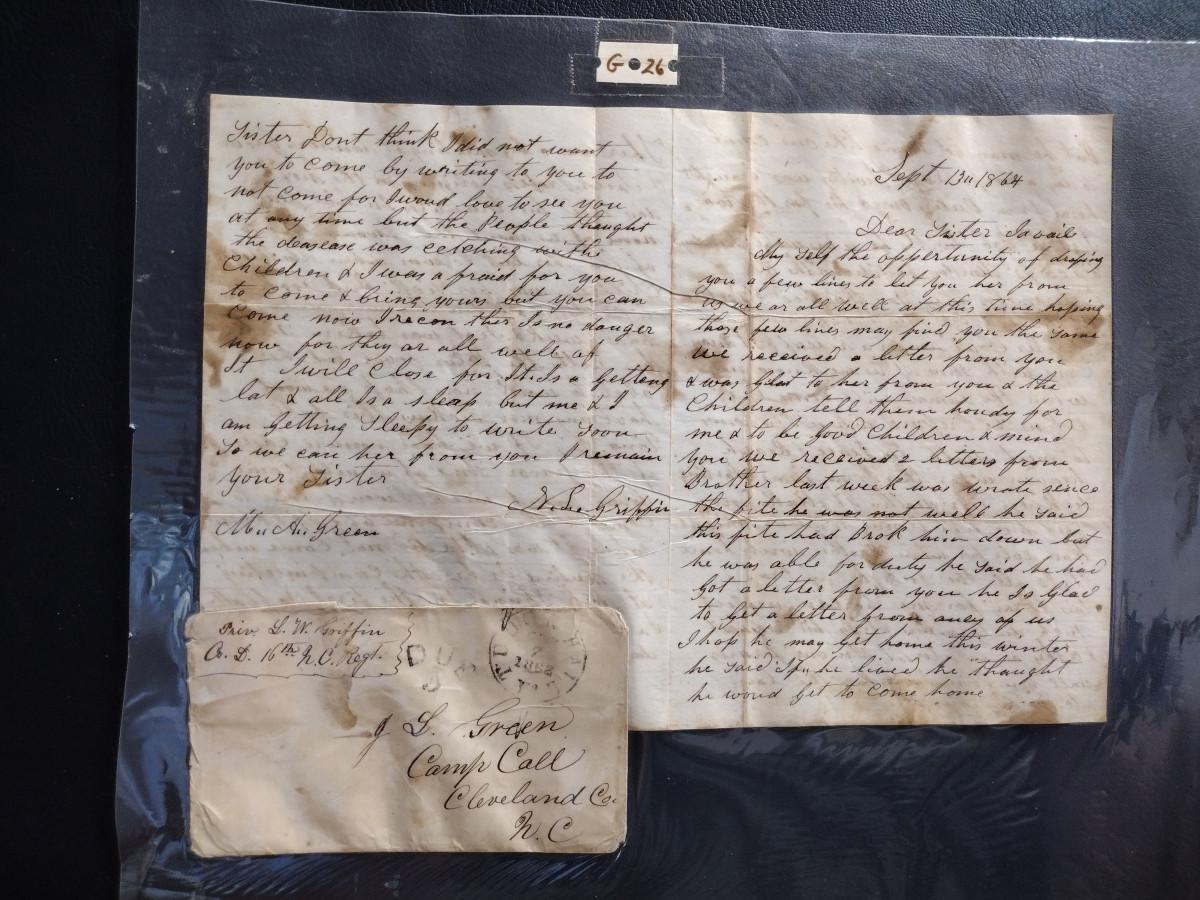 G 26
Sept 13th 1864
Dear Sister I avail
My self the opportunity of droping
you a few lines to let you her from
us we ar all well at this time hoping
those few lines may find you the same
We received a letter from you
& was Glad to her from you & the
Children tell them houdy for
me & to be Good Children & mind
you we received 2 letters from
Brother last week was wrote sence
the fite he was not well he said
this fite had Brok him down but
he was able for duty he said he had
Got a letter from you he Is Glad
to get a letter from aney of us
I hop he may get home this winter
he said If he lived he thought
he woud get to come home
Sister Dont think I did not want
you to come by writing to you to
not come for I woud love to see you
at any time but the People thought
the deasease was cetching with
Children & I was a fraid for you
to come & bring yours but you can
Come now I recon ther Is no danger
now for they ar all well of
It I will Close for It Is a Getting
lat & all Is a sleap but me & I
am getting Sleepy to write soon
So we can her from you I remain
your Sister
Griffin
Green
Priv. L. W. Griffin
Co. D. 16th N.C. Regt.
DUE
J L. Green
Camp Call
Cleveland Co.
N. C